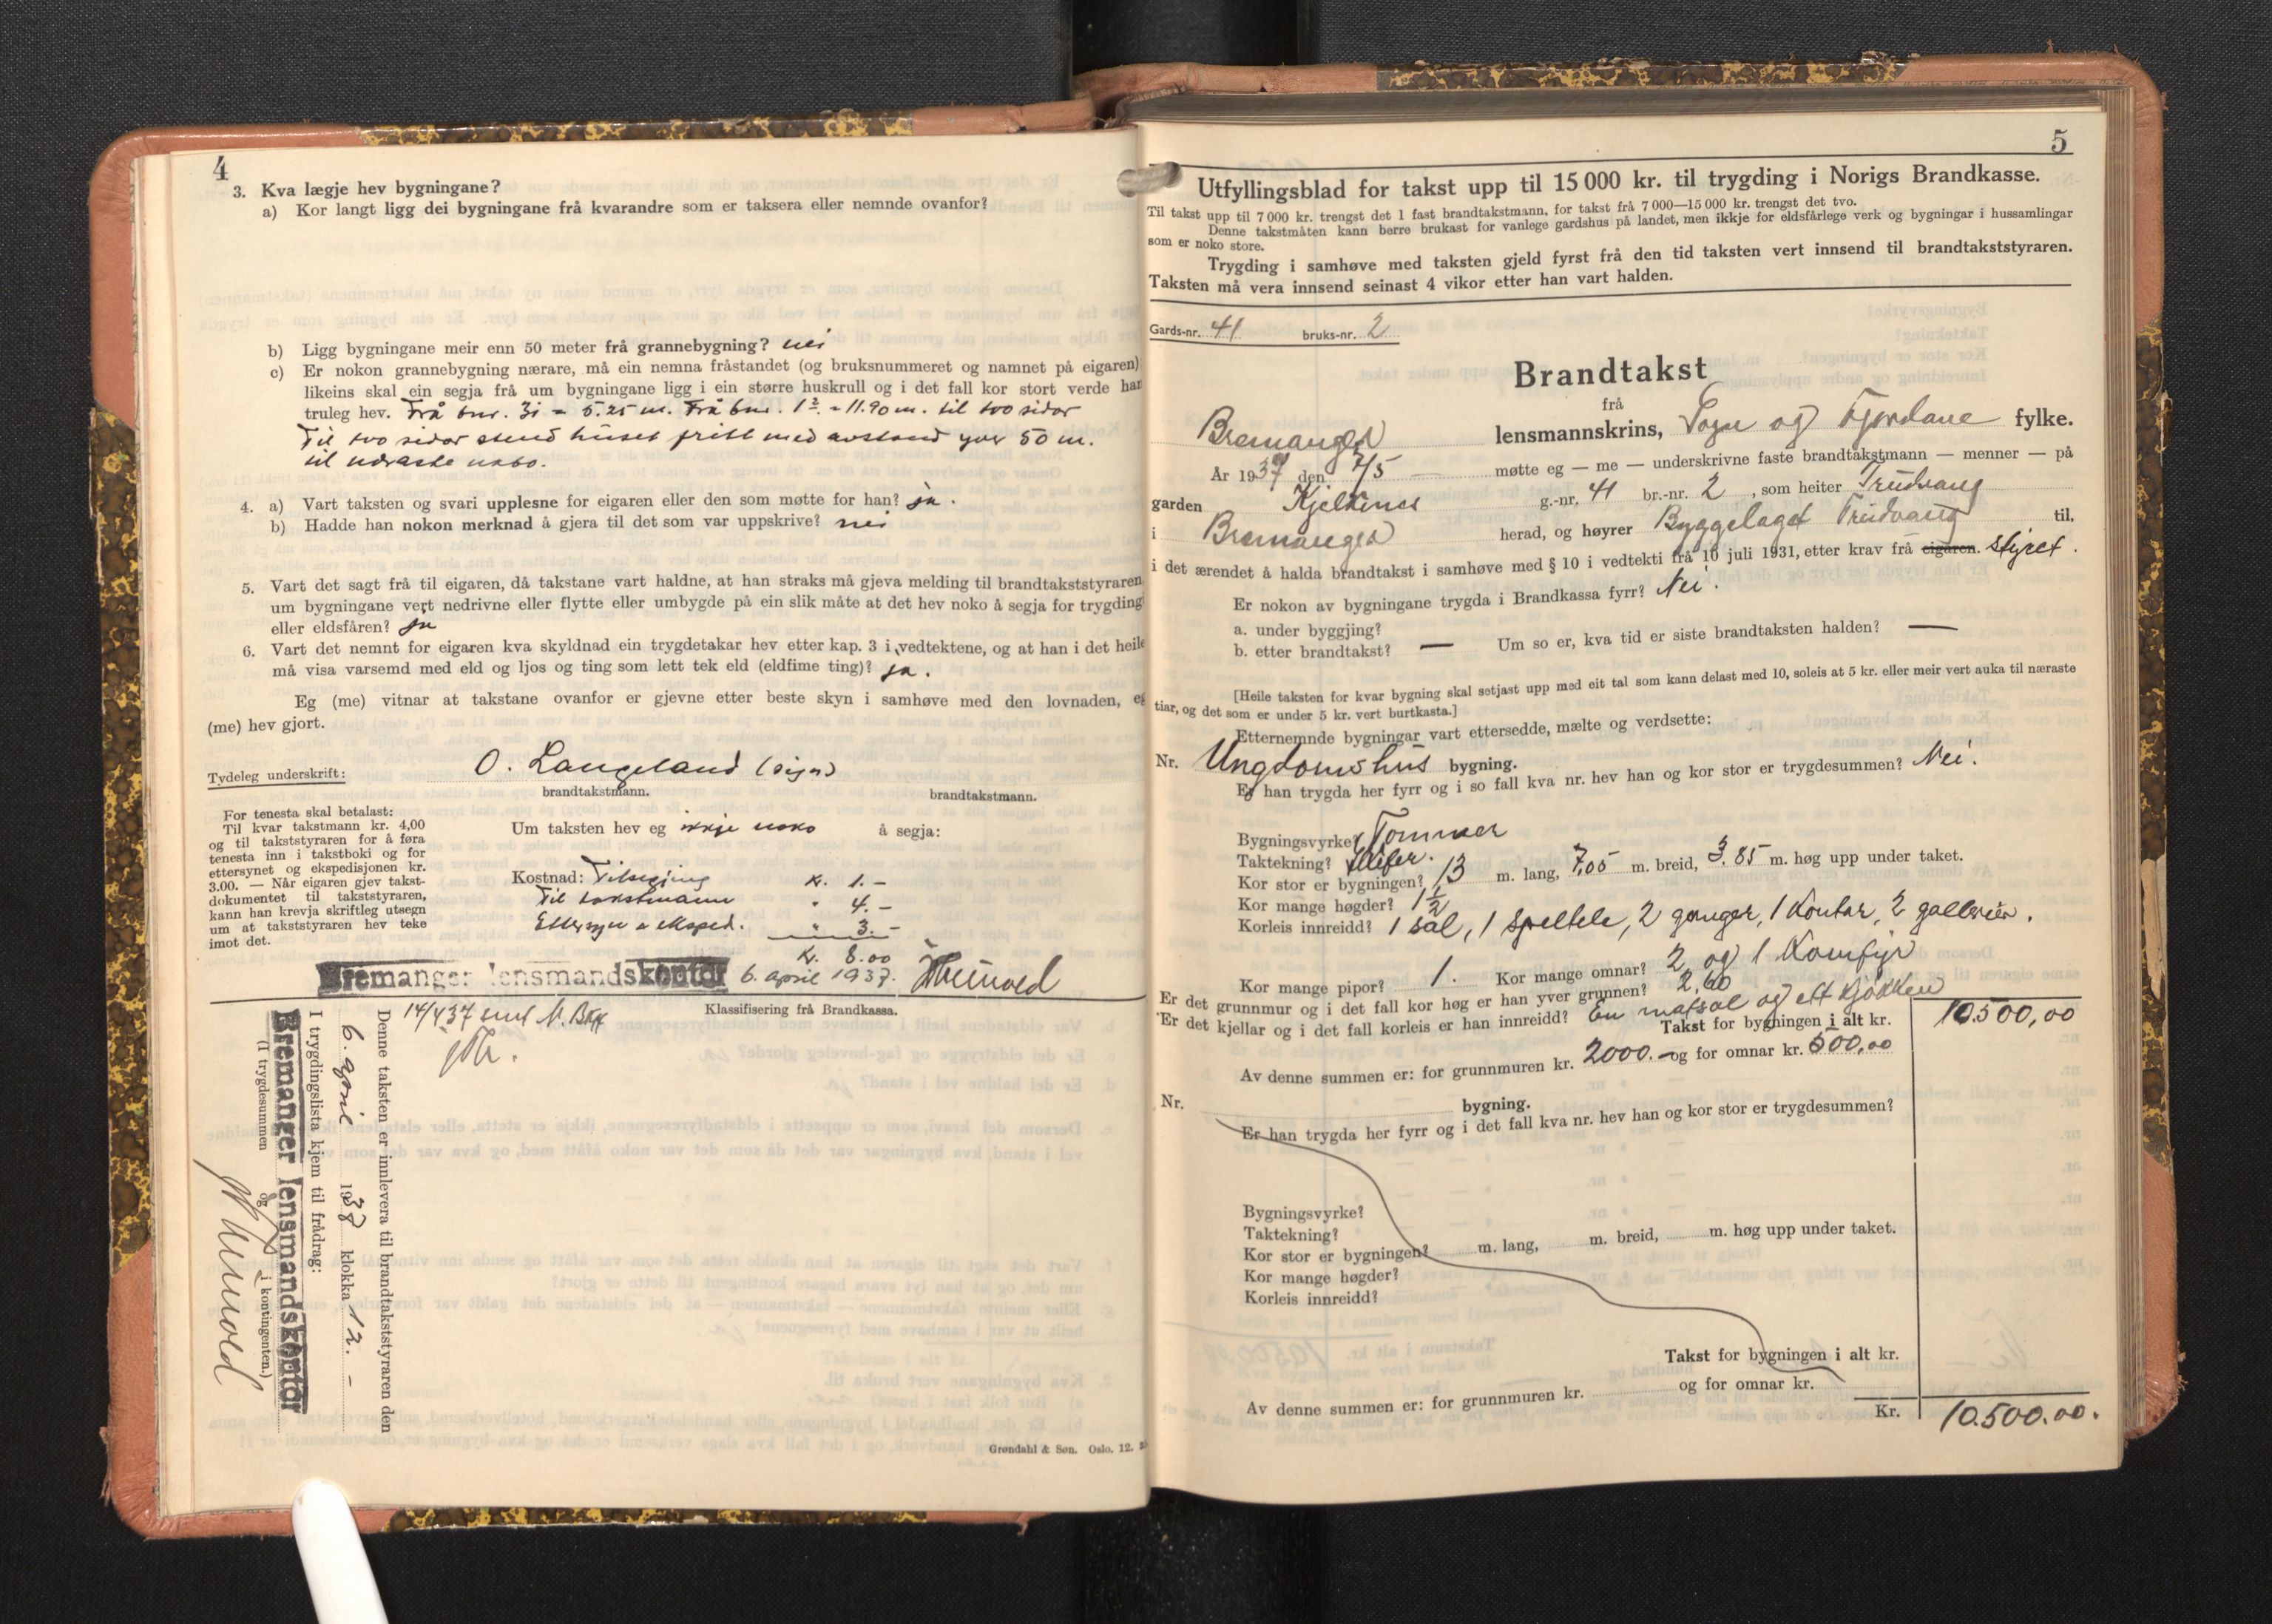 4
3. Kva lægje hev bygningane?
a) Kor langt ligg dei bygningane frå kvarandre som er taksera eller nemnde ovanfor?
b) Ligg bygningane meir enn 50 meter frå grannebygning? nei
c) Er nokon grannebygning nærare, må ein nemna fråstandet (og bruksnummeret og namnet på eigaren)
likeins skal ein segja frå um bygningane ligg i ein større huskrull og i det fall kor stort verde han
truleg hev. Frå bnr. 31 = 5.25 m. Frå bnr. 12. = 11.90 m. til tvo sidor
Til tvo sidor stend huset fritt med avstand yver 50 m.
til næraste nabo.
4. a) Vart taksten og svari upplesne for eigaren eller den som møtte for han? ja.
b) Hadde han nokon merknad å gjera til det som var uppskrive? nei
5. Vart det sagt frå til eigaren, då takstane vart haldne, at han straks må gjeva melding til brandtakststyraren
um bygningane vert nedrivne eller flytte eller umbygde på ein slik måte at det hev noko å segja for trygding
eller eldsfåren? ja
6. Vart det nemnt for eigaren kva skyldnad ein trygdetakar hev etter kap. 3 i vedtektene, og at han i det heile
må visa varsemd med eld og ljos og ting som lett tek eld (eldfime ting)? ja.
Eg (me) vitnar at takstane ovanfor er gjevne etter beste skyn i samhøve med den lovnaden, eg
(me) hev gjort.
Tydeleg underskrift: O. Langeland (sign)
brandtakstmann. brandtakstmann.
For tenesta skal betalast:
Til kvar takstmann kr. 4,00
og til takststyraren for å føra
tenesta inn i takstboki og for
ettersynet og ekspedisjonen kr.
3.00. — Når eigaren gjev takst-
dokumentet til takststyraren,
kann han krevja skriftleg utsegn
um at takststyraren hev teke
imot det.
Um taksten hev eg ikkje noko å segja:
Kostnad: Tilsegjing kr. 1.-
Til takstmann " 4.-
Ettersyn o eksped. " 3.-
Kr. 8.00
Bremanger lensmandskontor 6. april 1937.
14/4 37 sendt N. Bkk
Klassifisering frå Brandkassa.
Denne taksten er innlevera til brandtakststyraren den
6. april 1937 klokka 12. -
I trygdingslista kjem til frådrag:
Bremanger lensmandskontor
(I trygdesummen og i kontingenten.)
Grøndahl & Søn. Oslo. 12.
5
Utfyllingsblad for takst upp til 15 000 kr. til trygding i Norigs Brandkasse.
Til takst upp til 7 000 kr. trengst det 1 fast brandtakstmann, for takst frå 7 000—15 000 kr. trengst det tvo.
Denne takstmåten kann berre brukast for vanlege gardshus på landet, men ikkje for eldsfårlege verk og bygningar i hussamlingar
som er noko store.
Trygding i samhøve med taksten gjeld fyrst frå den tid taksten vert innsend til brandtakststyraren.
Taksten må vera innsend seinast 4 vikor etter han vart halden.
Gards-nr. 41 bruks-nr. 2
Brandtakst
frå
Bremanger lensmannskrins, Sogn og Fjordane fylke.
År 1937 den 7/5 møtte eg — me — underskrivne faste brandtakstmann — menner — på
garden Kjelkenes g.-nr. 41 br.-nr. 2, som heiter Trudvang
i Bremanger herad, og høyrer Byggelaget Trudvang til,
i det ærendet å halda brandtakst i samhøve med § 10 i vedtekti frå 10 juli 1931, etter krav frå eigaren. styret.
Er nokon av bygningane trygda i Brandkassa fyrr? Nei.
a. under byggjing?
b. etter brandtakst? — Um so er, kva tid er siste brandtaksten halden? —
[Heile taksten for kvar bygning skal setjast upp med eit tal som kann delast med 10, soleis at 5 kr. eller meir vert auka til næraste
tiar, og det som er under 5 kr. vert burtkasta.]
Etternemnde bygningar vart ettersedde, mælte og verdsette:
Nr. Ungdomshus bygning.
Er han trygda her fyrr og i so fall kva nr. hev han og kor stor er trygdesummen? Nei.
Bygningsvyrke? Tømmer
Taktekning? Skifer.
Kor stor er bygningen? 13 m. lang, 7,05 m. breid, 3.85 m. høg upp under taket.
Kor mange høgder? 1 1/2
Korleis innreidd? 1 sal, 1 speltele, 2 ganger, 1 kontor, 2 gallerier.
Kor mange pipor? 1. Kor mange omnar? 2 og 1 Komfyr
Er det grunnmur og i det fall kor høg er han yver grunnen? 2,60
Er det kjellar og i det fall korleis er han innreidd? En matsal og ett kjøkken
Takst for bygningen i alt kr. 10.500,00
Av denne summen er: for grunnmuren kr. 2000.- og for omnar kr. 500,00
Nr. bygning.
Er han trygda her fyrr og i det fall kva nr. hev han og kor stor er trygdesummen?
Bygningsvyrke?
Taktekning?
Kor stor er bygningen? m. lang, m. breid, m. høg upp under taket.
Kor mange høgder?
Korleis innreidd?
Takst for bygningen i alt kr.
Av denne summen er: for grunnmuren kr. og for omnar kr.
Kr. 10.500.00.